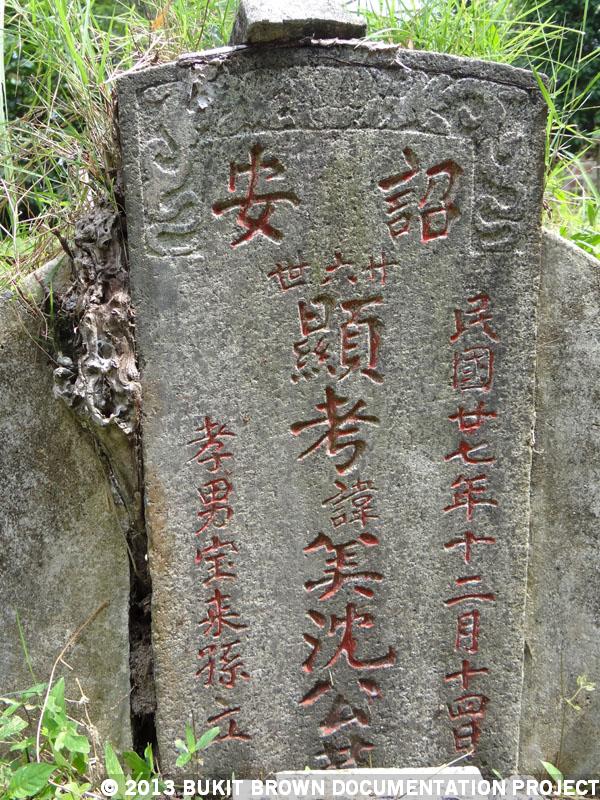 詔安
民國廿七年十二月十四日
廿六世
顯考諱美沈公
孝男宝来孫立
© 2013 BUKIT BROWN DOCUMENTATION PROJECT